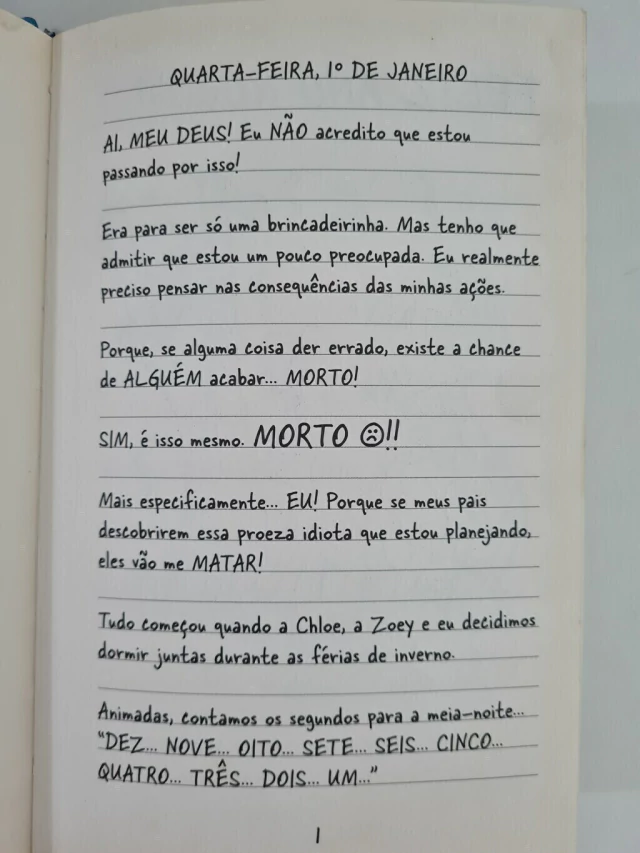 QUARTA-FEIRA, 1º DE JANEIRO
AI, MEU DEUS! Eu NÃO acredito que estou
passando por isso!
Era para ser só uma brincadeirinha. Mas tenho que
admitir que estou um pouco preocupada. Eu realmente
preciso pensar nas consequências das minhas ações.
Porque, se alguma coisa der errado, existe a chance
de ALGUÉM acabar... MORTO!
SIM, é isso mesmo. MORTO ☹!!
Mais especificamente... EU! Porque se meus pais
descobrirem essa proeza idiota que estou planejando,
eles vão me MATAR!
Tudo começou quando a Chloe, a Zoey e eu decidimos
dormir juntas durante as férias de inverno.
Animadas, contamos os segundos para a meia-noite...
"DEZ... NOVE... OITO... SETE... SEIS... CINCO...
QUATRO... TRÊS... DOIS... UM..."
1